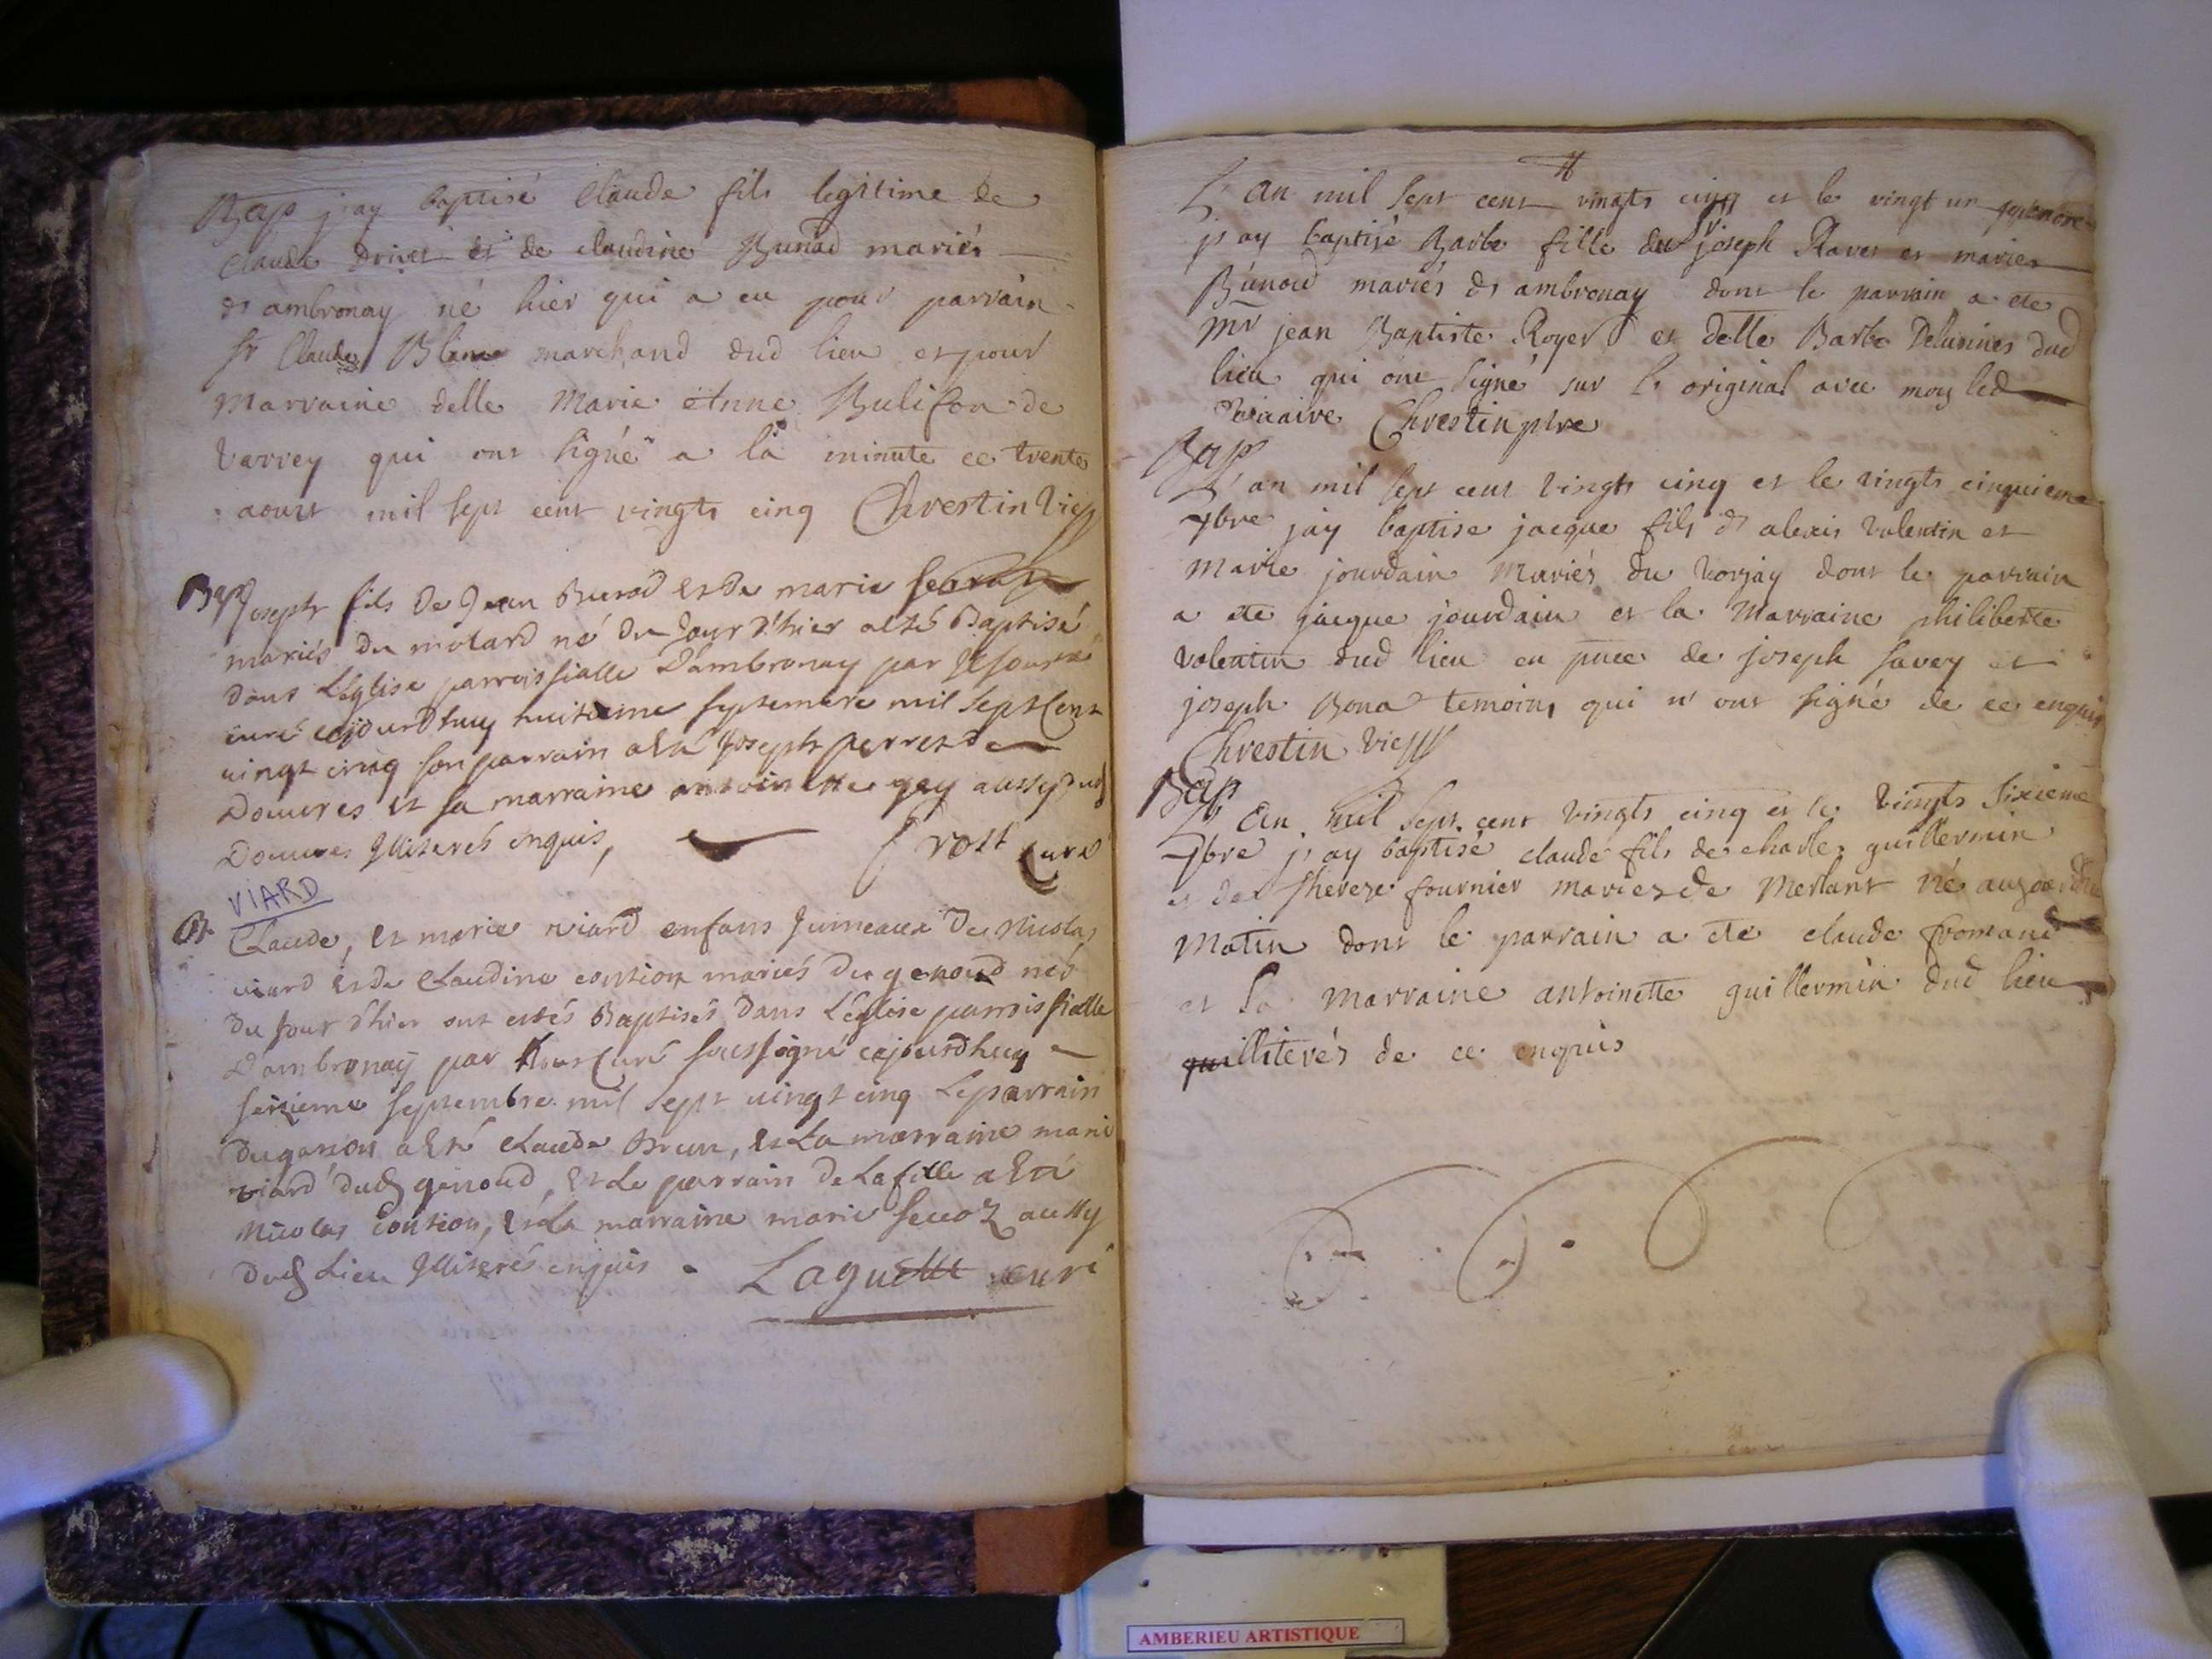 Bap j'ay baptisé Claude fils legitime de
Claude Drivet et de claudine Bunod mariés
d'ambronay né hier qui a eu pour parrain
Sr Claude Blanc marchand dud lieu et pour
Marraine delle Marie Anne Bulifon de
Varrey qui ont signé a la minute ce trente
aoust mil sept cent vingts cinq Chrestin Vic
Bap Joseph fils de Jean Bunod et de marie
mariés du molard né du Jour d'hier a esté Baptisé
dans L'Eglise parroissialle d'ambronay par
curé cejourdhuy huitieme septembre mil sept Cent
vingt cinq son parrain a esté Joseph perret de
Douvres et sa marraine antoinette gey aussy dud
Douvres Illiterés enquis, Prost Curé
VIARD
B Claude, et marie viard enfans Jumeaux de Nicolas
viard et de Claudine coution mariés du genoud nés
du Jour d'hier ont estés Baptisés dans L'église parroissialle
d'ambronay par Nous Curé soussigné cejourdhuy
seizieme septembre mil sept vingt cinq Le parrain
du garson a esté Claude Brun, et La marraine marie
viard dud genoud, et Le parrain de La fille a esté
Nicolas coution, et La marraine marie aussy
dud Lieu Illiterés enquis. Laguette curé
L'an mil sept cent vingts cinq et le vingt un septembre
j'ay baptisé Barbe fille du Sr joseph Ravet et marie
Bunod mariés d'ambronay dont le parrain a ete
Mr jean Baptiste Royer et delle Barbe Delusines dud
lieu qui ont signé sur l'original avec moy led
Vicaire Chrestin ptre
Bap
L'an mil sept cent vingts cinq et le vingts cinquieme
7bre j'ay baptise jacque fils d'alexis valentin et
Marie jourdain Mariés du Vorjay dont le parrain
a ete jacque jourdain et la Marraine philiberte
valentin dud lieu en pnce de joseph savey et
joseph Bona temoins qui n'ont signé de ce enquis
Chrestin Vic
Bap
L'an mil sept cent vingts cinq et le vingts sixieme
7bre j'ay baptisé claude fils de charles guillermin
et de therese fournier maries de Merlant né aujourdhui
Matin dont le parrain a ete claude fromand
et la Marraine antoinette guillermin dud lieu
illiterés de ce enquis
AMBERIEU ARTISTIQUE